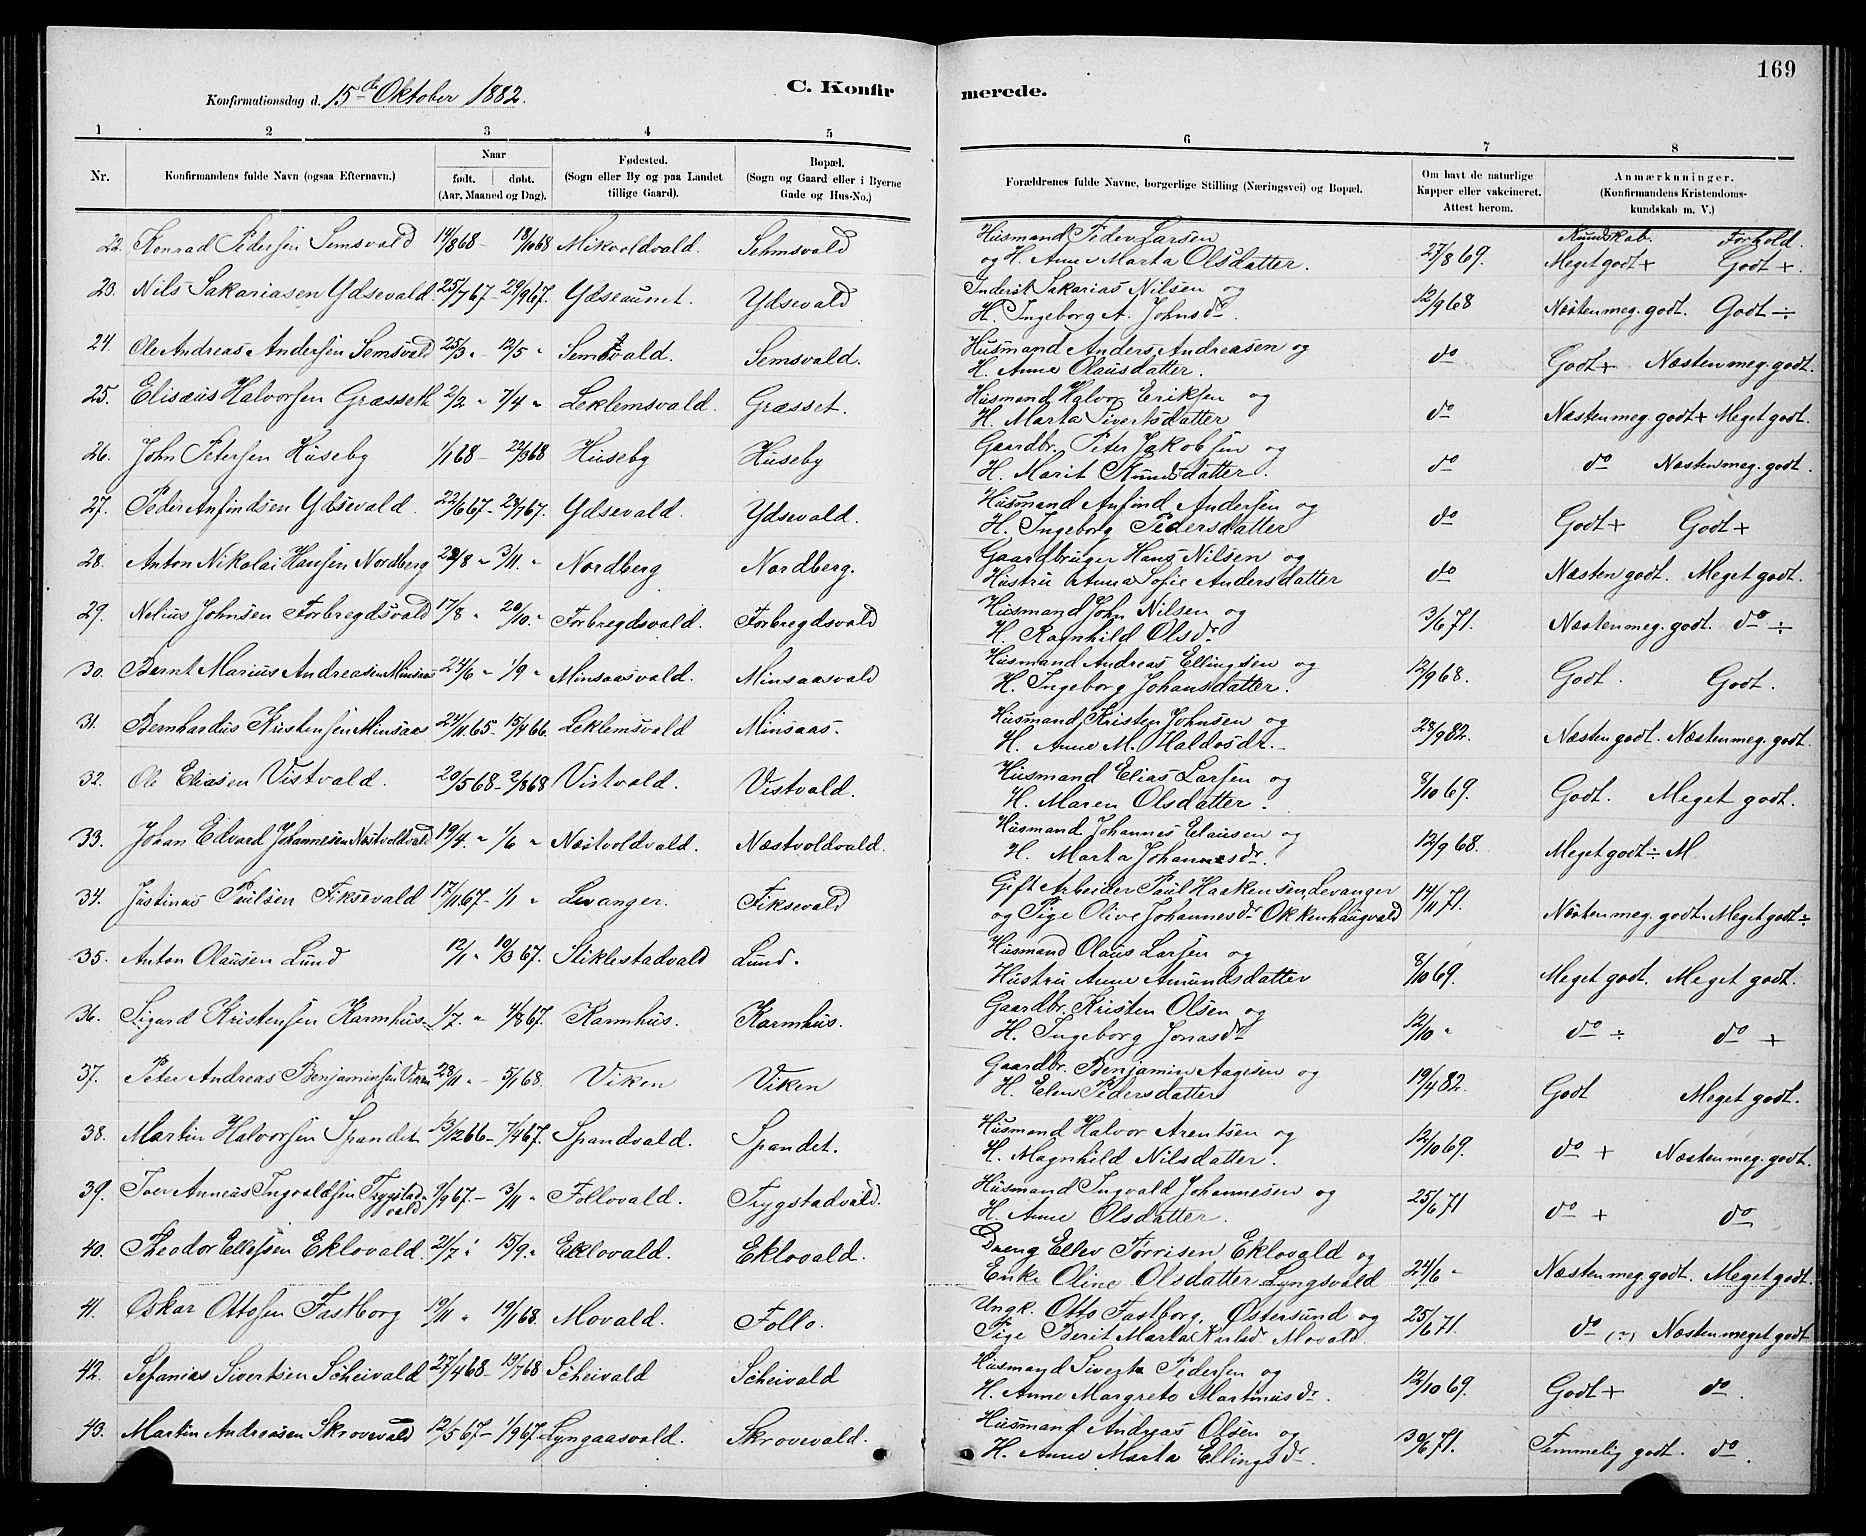 169
Konfirmationsdag d. 15de Oktober 1882.
C. Konfirmerede.
1 2 3 4 5 6 7 8
Nr. Konfirmandens fulde Navn (ogsaa Efternavn.) Naar født. døbt. (Aar, Maaned og Dag). Fødested. (Sogn eller By og paa Landet tillige Gaard). Bopæl. (Sogn og Gaard eller i Byerne Gade og Hus-No.) Forældrenes fulde Navne, borgerlige Stilling (Næringsvei) og Bopæl. Om havt de naturlige Kapper eller vakcineret. Attest herom. Anmærkninger. (Konfirmandens Kristendoms-kundskab m. V.)
Kundskab. Forhold.
22. Konrad Pedersen Semsvald 14/8 68 - 18/10 68 Mikvoldvald. Sehmsvald Husmand Peder Larsen
og H. Anne Marta Olsdatter. 27/8 69. Meget godt + Godt +.
23. Nils Sakariasen Ydsevald 25/7 67 - 29/9 67. Ydseaunet. Ydsevald Inderst Sakarias Nilsen og
H. Ingeborg A. Johnsdr. 12/9 68 Næsten meg. godt. Godt ÷
24. Ole Andreas Andersen Semsvald 25/3 " 12/5 " Semsvald. Semsvald. Husmand Anders Andreasen og
H. Anne Olausdatter. do Godt + Næsten meg. godt.
25. Elisæus Halvorsen Græsseth 2/2 " 7/4 " Leklemsvald. Græsset. Husmand Halvor Eriksen og
H. Marta Sivertsdatter do Næsten meg. godt + Meget godt.
26. John Petersen Huseby 1/1 68 - 22/3 68 Huseby Huseby Gaardbr. Peter Jakobsen og
H. Marit Knudsdatter. do do Næsten meg. godt.
27. Peder Anfindsen Ydsevald. 22/6 67 - 28/7 67. Ydsevald. Ydsevald. Husmand Anfind Andersen og
H. Ingeborg Pedersdatter do Godt + Godt +
28. Anton Nikolai Hansen Nordberg 28/8 " 3/11 " Nordberg Nordberg. Gaardbruger Hans Nilsen og
Hustru Anna Sofie Andersdatter do Næsten godt. Meget godt.
29. Nelius Johnsen Forbregdsvald 17/8 " 20/10 " Forbregdsvald. Forbregdsvald Husmand John Nilsen og
H. Ragnhild Olsdr. 3/6 71. Næsten meg. godt. do ÷
30. Bernt Marius Andreasen Minsaas 24/6 " 1/9 " Minsaasvald. Minsaasvald Husmand Andreas Ellingsen og
H. Ingeborg Johansdatter. 12/9 68. Godt. Godt.
31. Bernhardus Kristensen Minsaas 24/11 65 - 15/4 66. Leklemsvald Minsaas. Husmand Kristen Johnsen og
H. Anne M. Haldosdr. 28/9 82. Næsten godt. Næsten meg. godt.
32. Ole Eliasen Vistvald. 20/5 68 - 2/8 68 Vistvald. Vistvald. Husmand Elias Larsen og
H. Maren Olsdatter. 8/10 69. Godt. Meget godt.
33. Johan Edvard Johannesen Næstvoldvald 19/4 " 1/6 " Næstvoldvald. Næstvoldvald. Husmand Johannes Elausen og
H. Marta Johannesdr. 12/9 68. Meget godt ÷ M
34. Justinus Paulsen Fiksevald 17/11 67 - 1/1 " Levanger. Fiksevald Gift Arbeider Paul Haakensen Levanger
og Pige Olive Johannesdr Okkenhaugvald 14/11 71. Næsten meg. godt. Meget godt ÷
35. Anton Olausen Lund 12/1 " 10/3 67. Stiklestadvald Lund. Husmand Olaus Larsen og
Hustru Anne Amundsdatter 8/10 69. Meget godt. Meget godt.
36. Sigurd Kristensen Karmhus 1/7 " 4/8 67. Karmhus. Karmhus. Gaardbr. Kristen Olsen og
H. Ingeborg Jonasdr 12/10 " do ÷ do +
37. Peter Andreas Benjaminsen Viken 28/11 " - 5/1 68. Viken Viken Gaardbr. Benjamin Aagesen og
H. Elen Pedersdatter 19/4 82. Godt Meget godt.
38. Martin Halvorsen Spandet 13/12 66 - 7/4 67. Spandvald. Spandet. Husmand Halvor Arentsen og
H. Magnhild Nilsdatter. 12/10 69. do + Næsten meg. godt.
39. Iver Anneus Ingvaldsen Trygstadvald 9/9 67. - 3/11 " Follovald. Trygstadvald. Husmand Ingvald Johannesen og
H. Anne Olsdatter. 25/6 71 do + do
40. Theodor Ellefsen Eklovald. 21/7 " 15/9 " Eklovald. Eklovald. Dreng Ellev Torrisen Eklovald og
Enke Oline Olsdatter Lyngsvald 24/6 " Næsten meg. godt. Meget godt.
41. Oskar Ottosen Fastborg 19/11 " 19/1 68. Movald. Follo. Ungk. Otto Fastborg, Østersund og
Pige Berit Marta Karlsdr Movald 25/6 71. do (÷) Næsten meget godt
42. Sefanias Sivertsen Scheivald 27/4 68 - 19/7 68 Scheivald Scheivald Husmand Sivert Pedersen og
H. Anne Margrete Martinusdr. 12/10 69. Godt + do.
43. Martin Andreasen Skrovevald 12/5 67 - 1/9 67 Lyngaasvald. Skrovevald. Husmand Andreas Olsen og
H. Anne Marta Ellingsdr. 30/6 71. Temmelig godt. do.